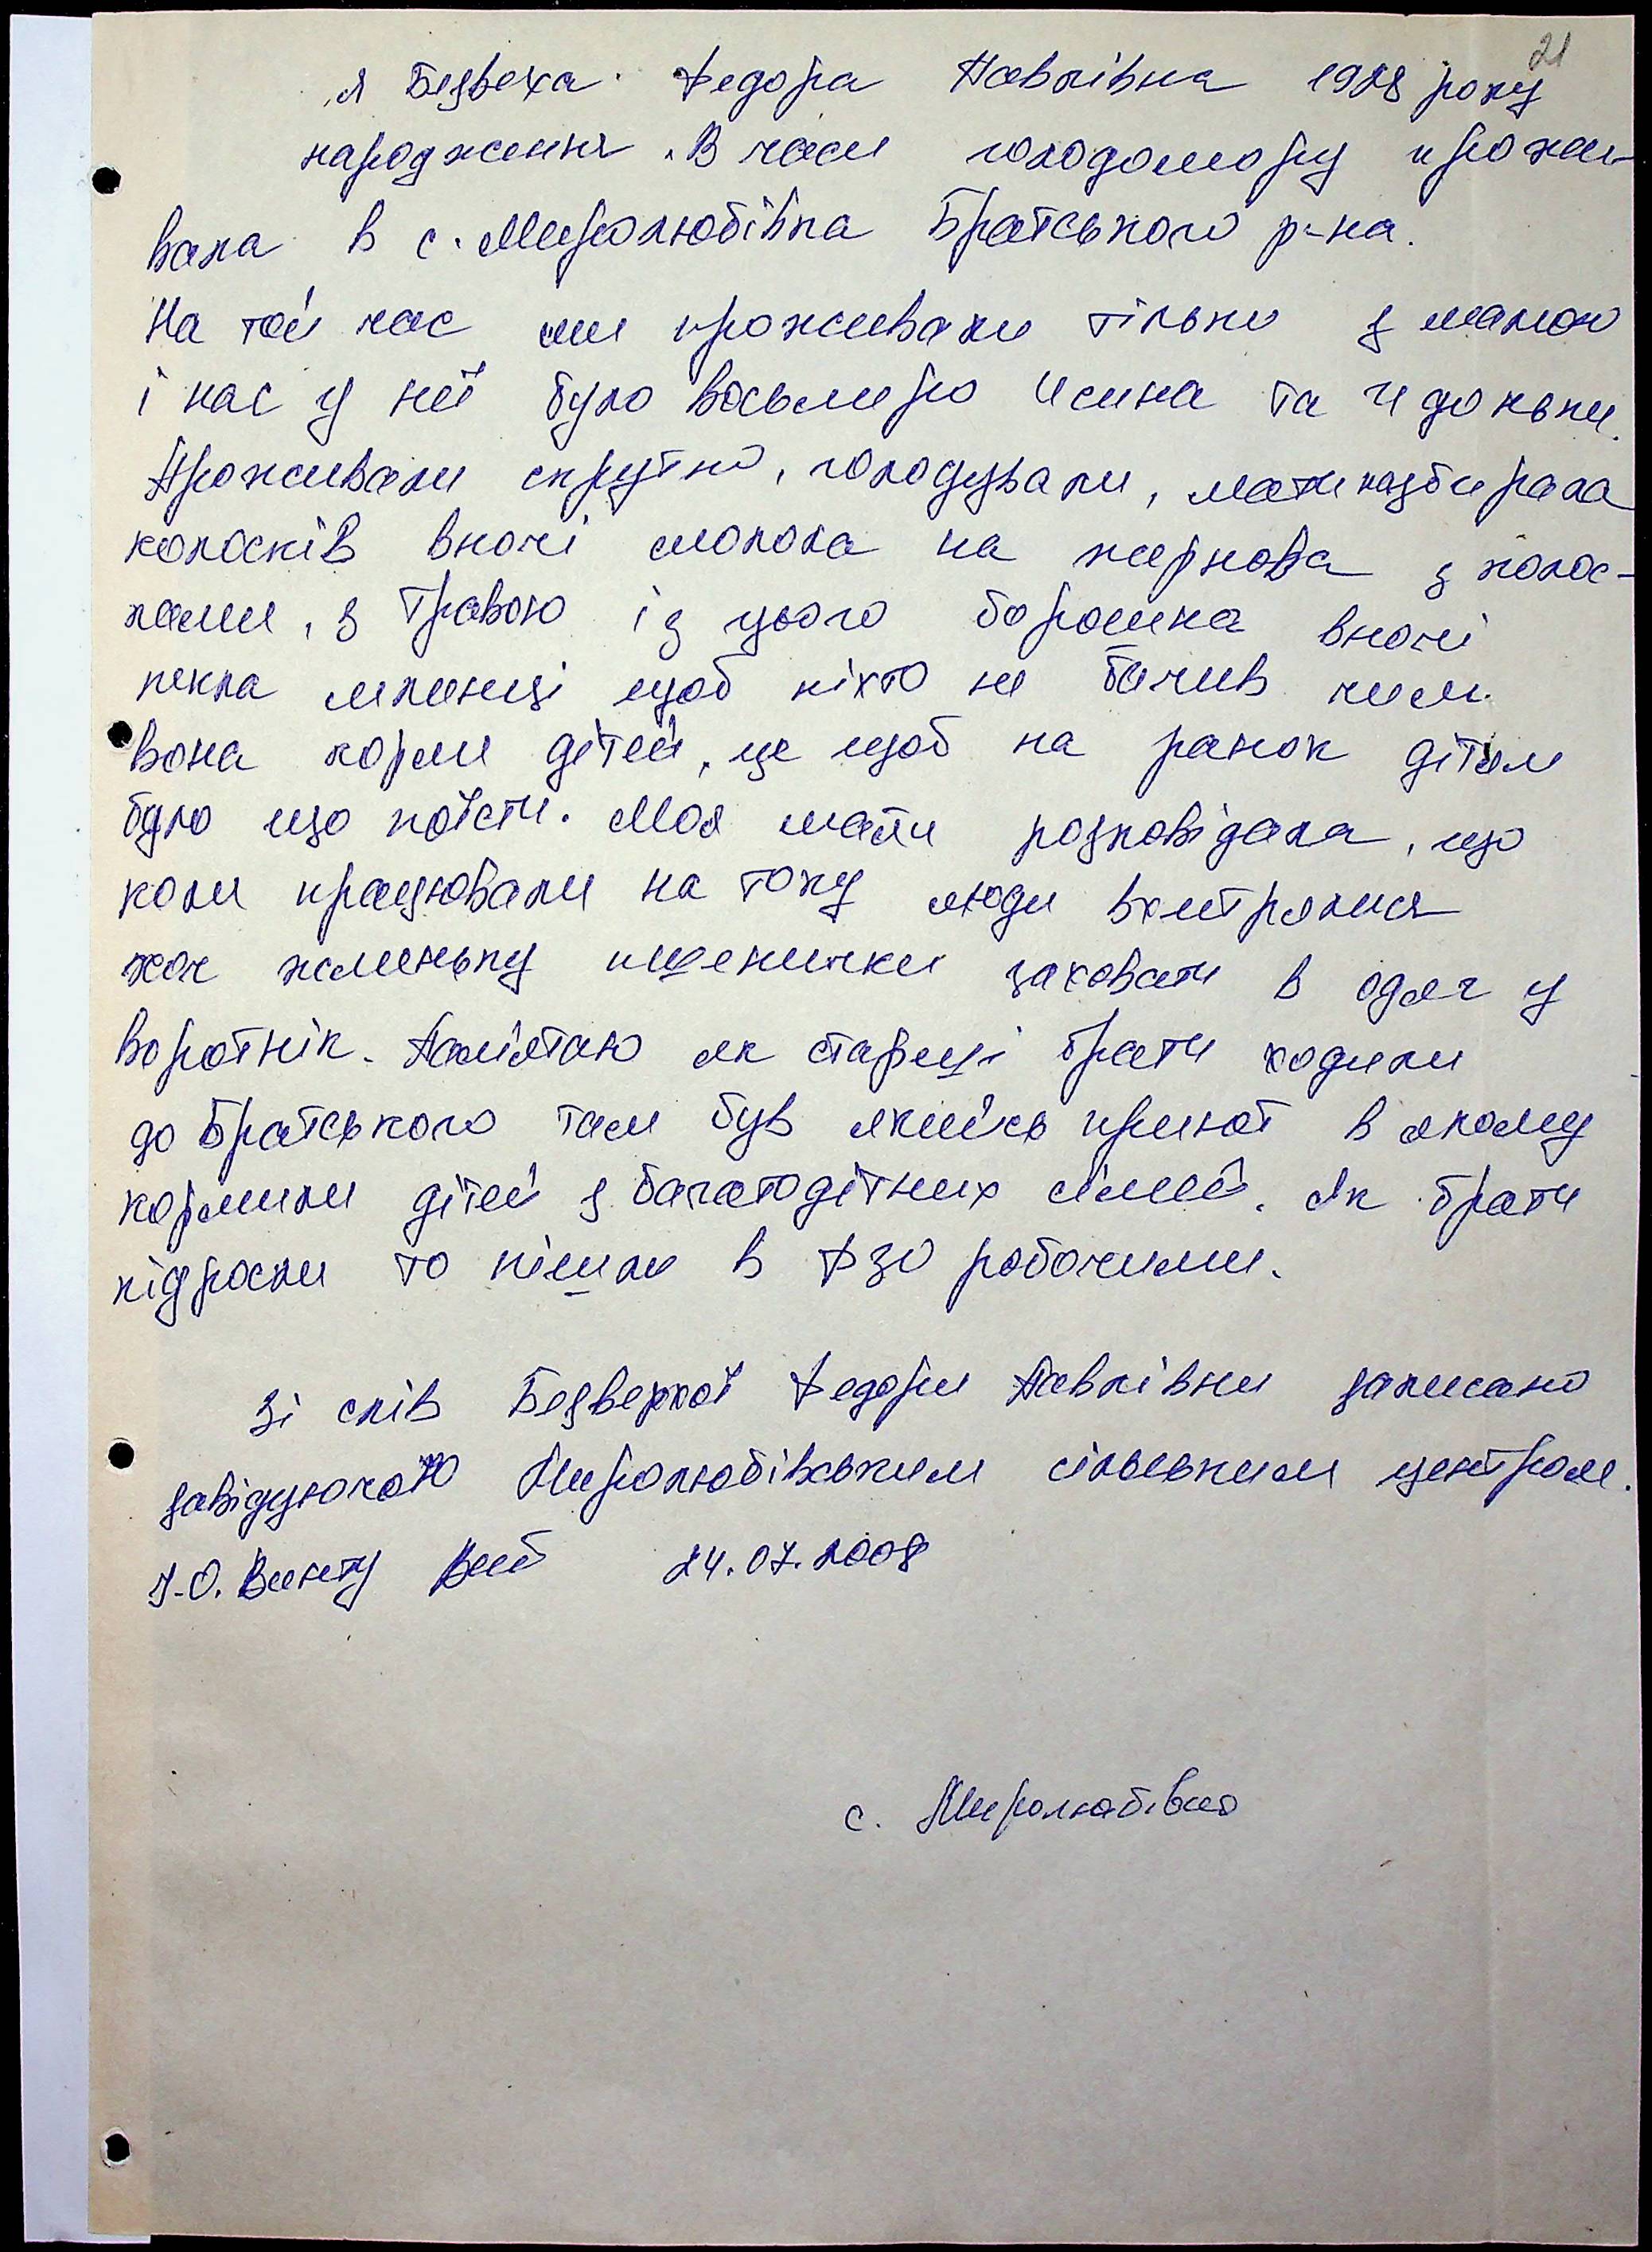 21
я Безвеха Федора Павлівна 1928 року
народження. В часи голодомору прожи-
вала в с. Миролюбівка Братського р-на.
На той час ми проживали тільки з мамою
і нас у неї було восьмеро 4 сина та 4 доньки.
Проживали скрутно, голодували, мати назбирала
колосків вночі молола на жернова з колос-
ками, з травою із цього борошна вночі
пекла млинці щоб ніхто не бачив чим
вона корми дітей, це щоб на ранок дітям
було що поїсти. Моя мати розповідала, що
коли працювали на току люди вхитрялися
хоч жменьку пшенички заховати в одяг у
воротнік. Памятаю як старші брати ходили
до Братського там був якийсь приют в якому
кормили дітей з багатодітних сімей. Як брати
підросли то пішли в ФЗО робочими.
Зі слів Безверхої Федори Павлівни записано
завідуючою Миролюбівським сільським центром.
24.07.2008
с. Миролюбівка